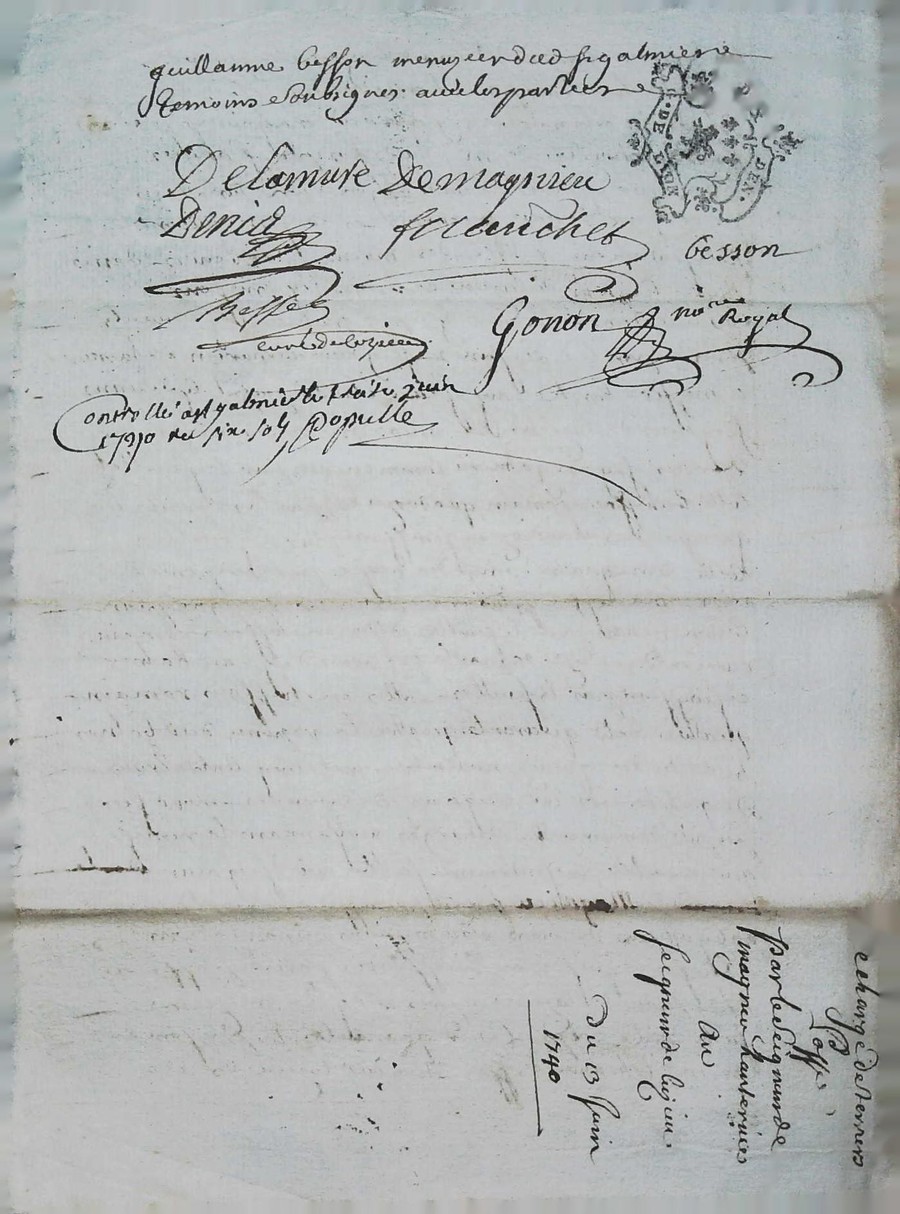 guillaume besson menuzier dud st galmier
temoins soubsignes avec les parties
GEN. DE
Delamure Demagnieu
Denis
franchet
besson
Besset
curé de
Gonon nore Royal
Controllé a st galmier le treize juin
1740 reçu six sols Populle
echange de terriers
par le seigneur de
magneu hauterives
Au
seigneur de
du 13 juin
1740